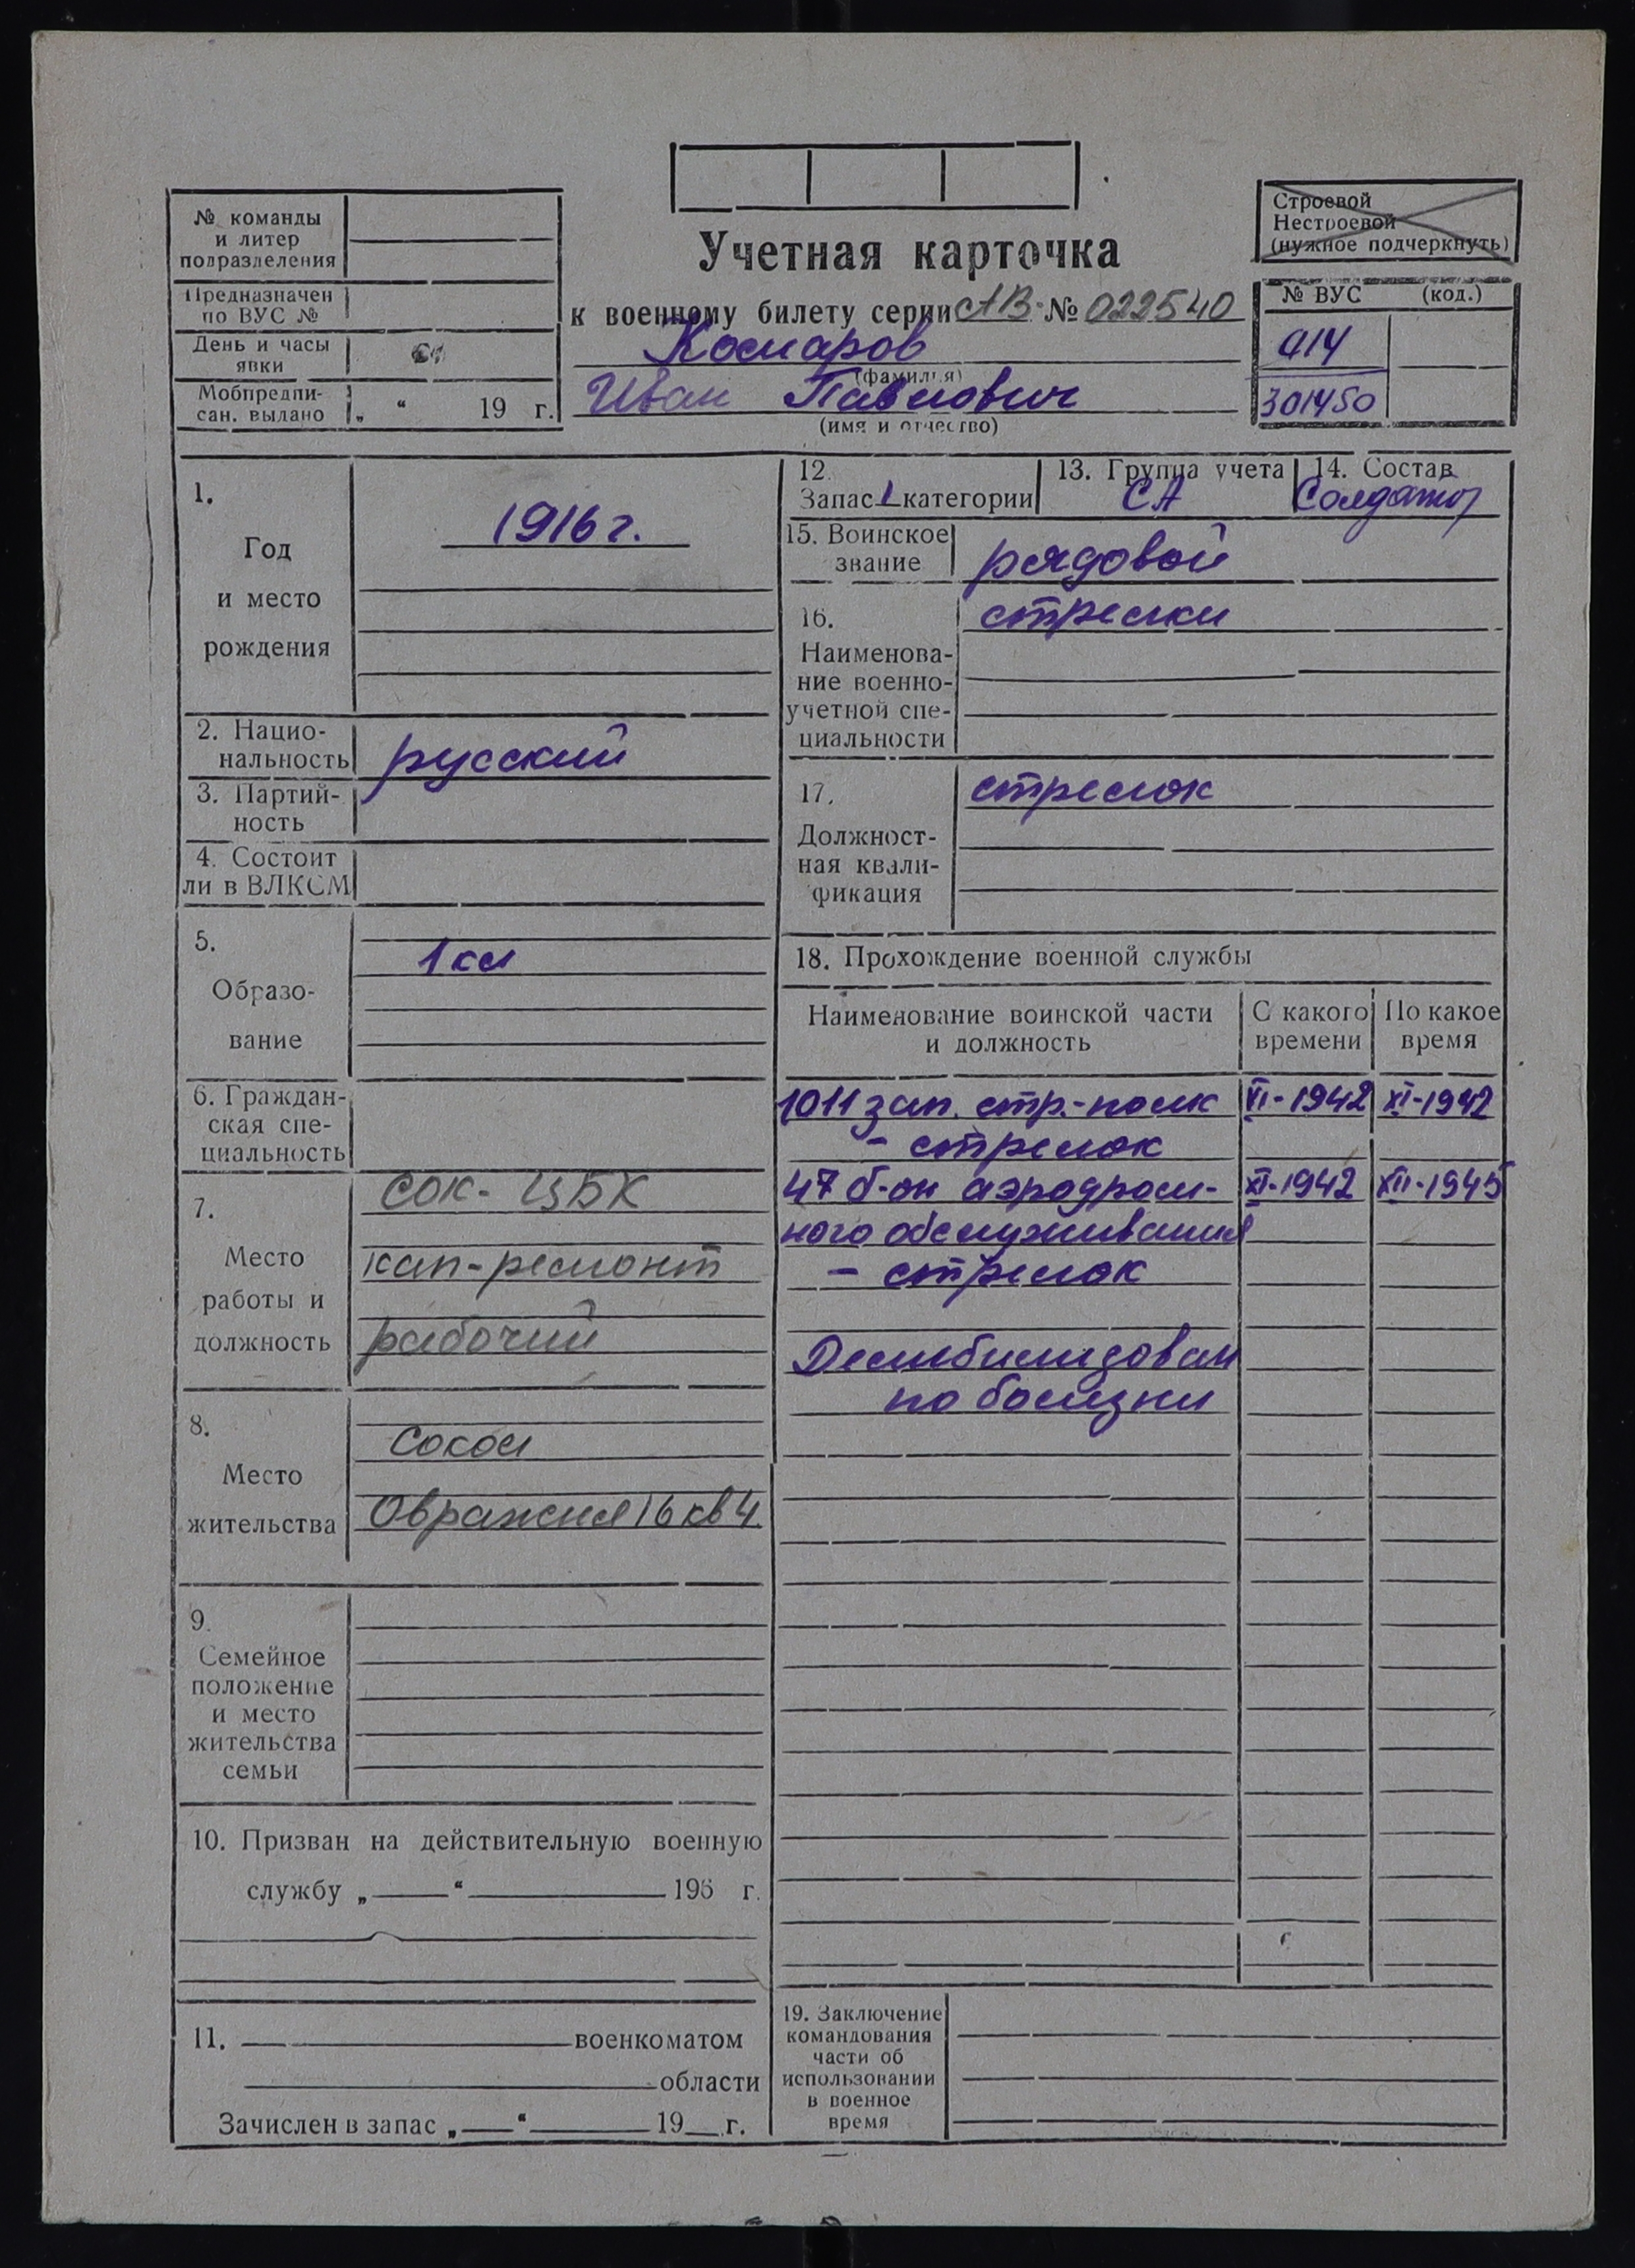 № команды
и литер
подразделения
Предназначен
по ВУС №
День и часы
явки
Мобпредпи-
сан. выдано „ “ 19 г.
Учетная карточка
к военному билету серии АВ № 022540
Комаров
(фамилия)
Иван Павлович
(имя и отчество)
Строевой
Нестроевой
(нужное подчеркнуть)
№ ВУС (код.)
914
301450
1.
Год
и место
рождения
1916 г.
2. Нацио-
нальность
русский
3. Партий-
ность
4. Состоит
ли в ВЛКСМ
5.
Образо-
вание
1 кл
6. Граждан-
ская спе-
циальность
7.
Место
работы и
должность
Сок. ЦБК
кап-ремонт
рабочий
8.
Место
жительства
Сокол
Овражная 16 кв 4
9.
Семейное
положение
и место
жительства
семьи
10. Призван на действительную военную
службу „ “ 195 г.
11. военкоматом
области
Зачислен в запас „ “ 19 г.
12.
Запас 2 категории
13. Группа учета
СА
14. Состав
Солдаты
15. Воинское
звание
рядовой
16.
Наименова-
ние военно-
учетной спе-
циальности
стрелки
17.
Должност-
ная квали-
фикация
стрелок
18. Прохождение военной службы
Наименование воинской части
и должность
С какого
времени
По какое
время
1011 зап. стр.-полк VI-1942 XI-1942
- стрелок
47 б-он аэродром- XI-1942 XII-1945
ного обслуживания
- стрелок
Демобилизован
по болезни
19. Заключение
командования
части об
использовании
в военное
время